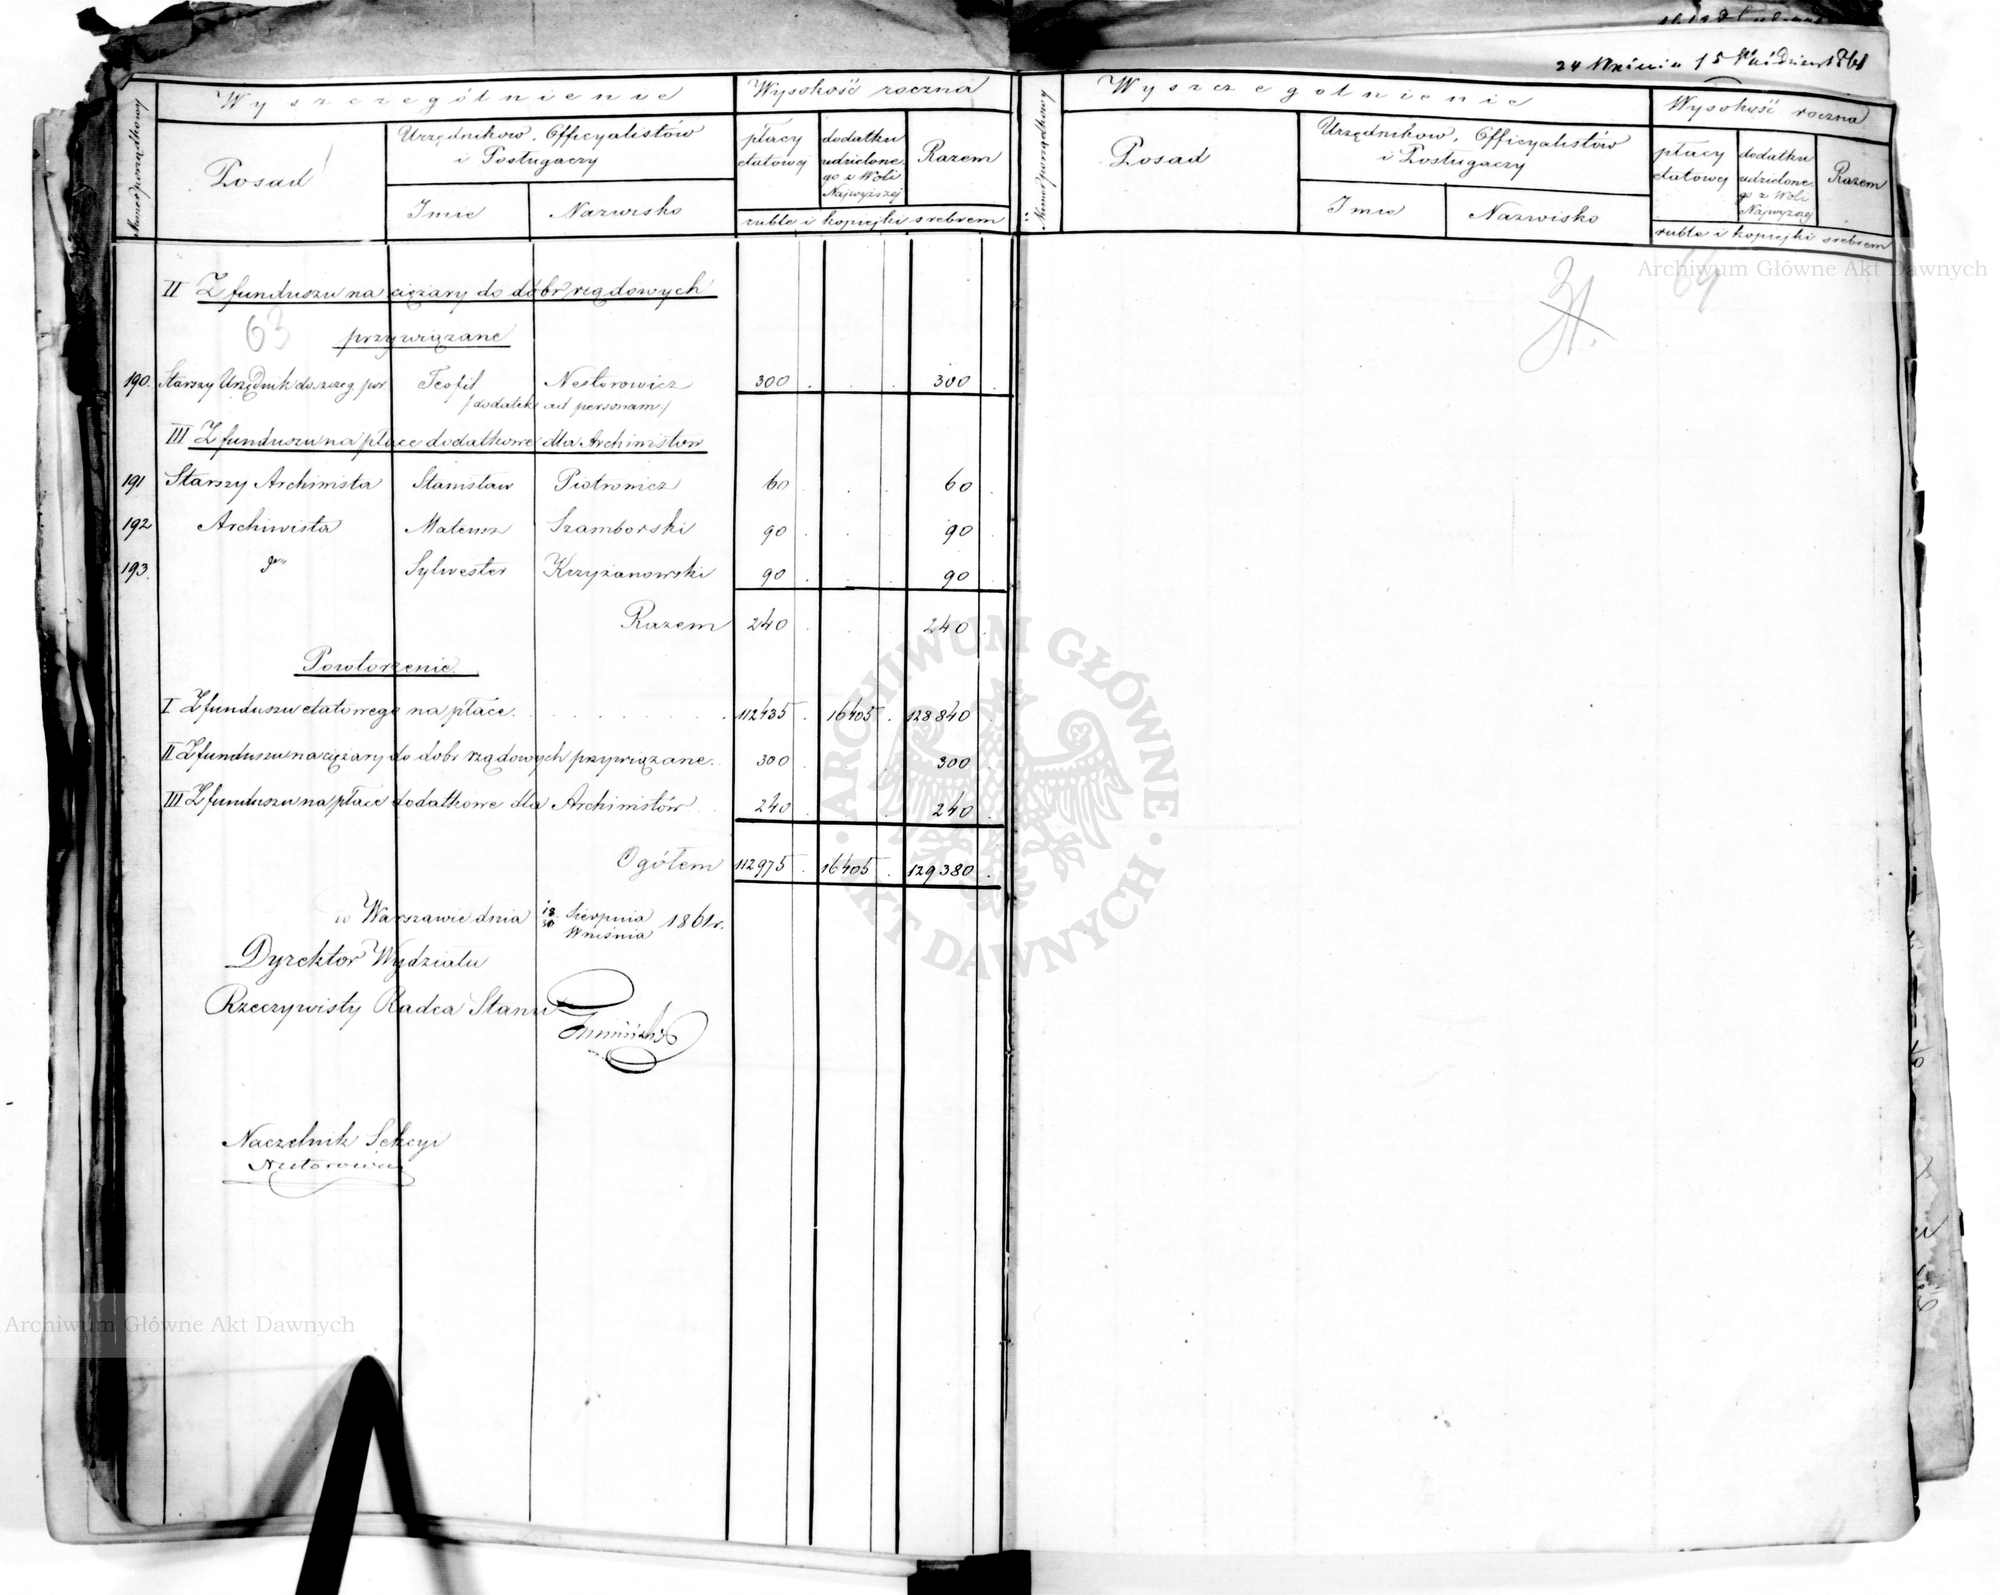 24 Września 1861
Numer porządkowy
Wyszczególnienie
Wysokość roczna
Posad
Urzędnikow, Officyalistów
i Posługaczy
Imie
Nazwisko
płacy
etatowej
dodatku
udzielone-
go z Woli
Najwyższej
Razem
ruble i kopiejki srebrem
II Z funduszu na ciężary do dóbr rządowych
63
przywiązane
190. Starszy Urzędnik do szczeg. por Teofil Nestorowicz 300 . . . 300 .
/dodatek ad personam/
III Z funduszu na płace dodatkowe dla Archiwistów
191 Starszy Archiwista Stanisław Piotrowicz 60 . . . 60 .
192 Archiwista Mateusz Szamborski 90 . . . 90 .
193. do Sylwester Krzyżanowski 90 . . . 90 .
Razem 240 . . . 240 .
Powtórzenie.
I Z funduszu etatowego na płace. 112435 . 16405 . 128840 .
II Z funduszu na ciężary do dobr rządowych przywiązane. 300 . . . 300 .
III Z funduszu na płace dodatkowe dla Archiwistów 240 . . . 240 .
Ogółem 112975 . 16405 . 129380 .
w Warszawie dnia 18 Sierpnia 1861 r.
30 Września
Dyrektor Wydziału
Rzeczywisty Radca Stanu
Naczelnik Sekcyi
Nestorowicz
Numer porządkowy
Wyszczegolnienie
Wysokość roczna
Posad
Urzędnikow, Officyalistów
i Posługaczy
Imie
Nazwisko
płacy
etatowej
dodatku
udzielone-
go z Woli
Najwyższej
Razem
ruble i kopiejki srebrem
31.
64
Archiwum Główne Akt Dawnych
ARCHIWUM GŁÓWNE AKT DAWNYCH
Archiwum Główne Akt Dawnych